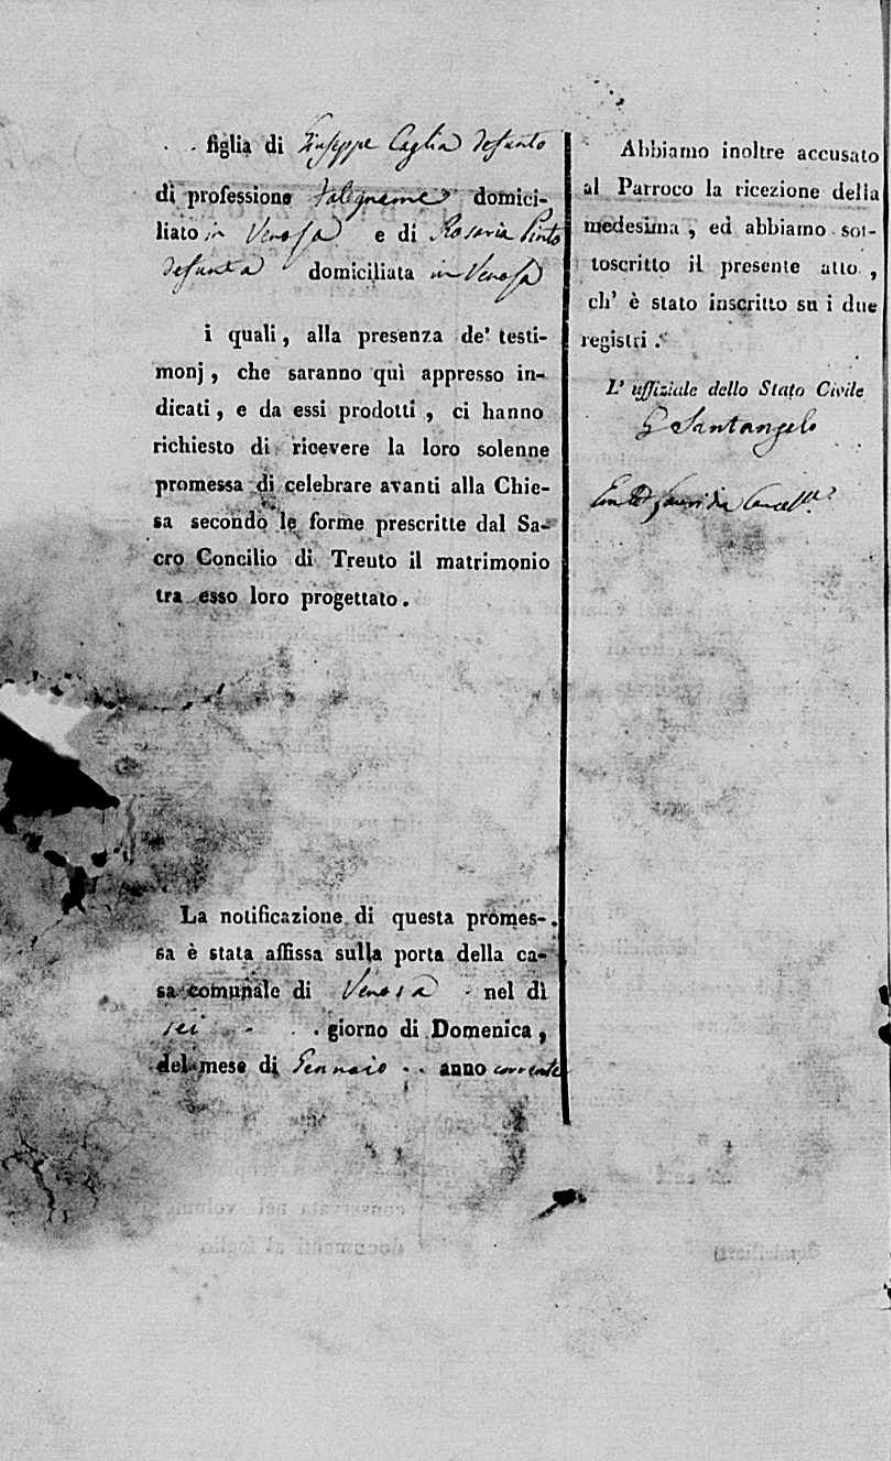 figlia di Giuseppe Caglia defunto
di professione falegname domici-
liato in Venosa e di Rosaria Pinto
defunta domiciliata in Venosa
i quali, alla presenza de' testi-
monj, che saranno quì appresso in-
dicati, e da essi prodotti, ci hanno
richiesto di ricevere la loro solenne
promessa di celebrare avanti alla Chie-
sa secondo le forme prescritte dal Sa-
cro Concilio di Treuto il matrimonio
tra esso loro progettato.
La notificazione di questa promes-
sa è stata affissa sulla porta della ca-
sa comunale di Venosa nel dì
sei giorno di Domenica,
del mese di Gennaio anno corrente
Abbiamo inoltre accusato
al Parroco la ricezione della
medesima, ed abbiamo sot-
toscritto il presente atto,
ch' è stato inscritto su i due
registri.
L' uffiziale dello Stato Civile
G Santangelo